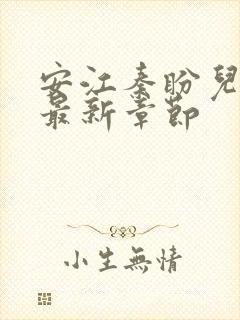 安江秦盼兒
最新章節
小生無情